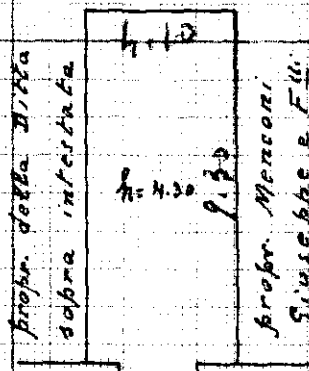 4.10
propr. della Ditta
sopra intestata
h= 4.30
9.30
propr. Menconi
Giuseppe e F.lli